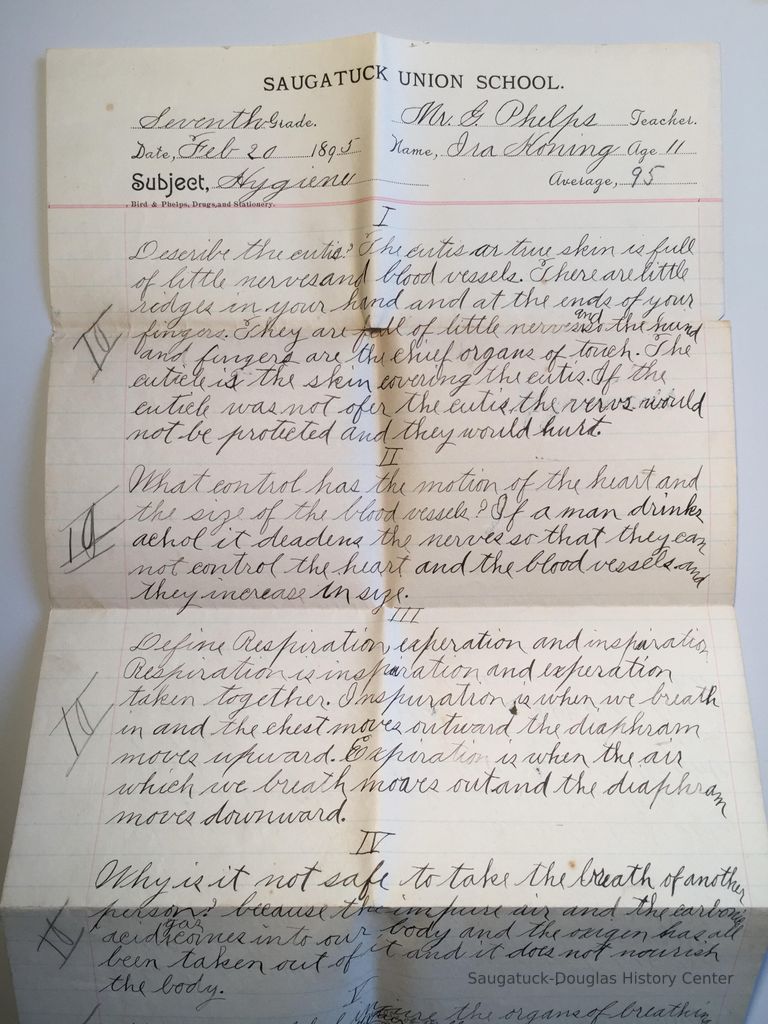 SAUGATUCK UNION SCHOOL.
Seventh Grade. Mr. G. Phelps Teacher.
Date, Feb 20 1895 Name, Ira Koning Age 11
Subject, Hygiene Average, 95
Bird & Phelps, Drugs, and Stationery.
I
Describe the cutis? The cutis or true skin is full
of little nerves and blood vessels. There are little
ridges in your hand and at the ends of your
fingers. They are full of little nerves and so the hand
10
and fingers are the chief organs of touch. The
cuticle is the skin covering the cutis. If the
cuticle was not ofer the cutis the vervs would
not be protected and they would hurt.
II
What control has the motion of the heart and
the size of the blood vessels? If a man drinks
10
achol it deadens the nerves so that they can
not control the heart and the blood vessels and
they increase in size.
III
Define Respiration, experation and inspiration
Respiration is inspiration and experation
10
taken together. Inspuration is when we breath
in and the chest moves outward the diaphram
moves upward. Expiration is when the air
which we breath moves out and the diaphram
moves downward.
IV
Why is it not safe to take the breath of another
person? because the impure air and the carbonic
10
acid gas comes into our body and the oxigen has all
been taken out of it and it does not nourish
the body.
V
the organs of breathing
Saugatuck-Douglas History Center